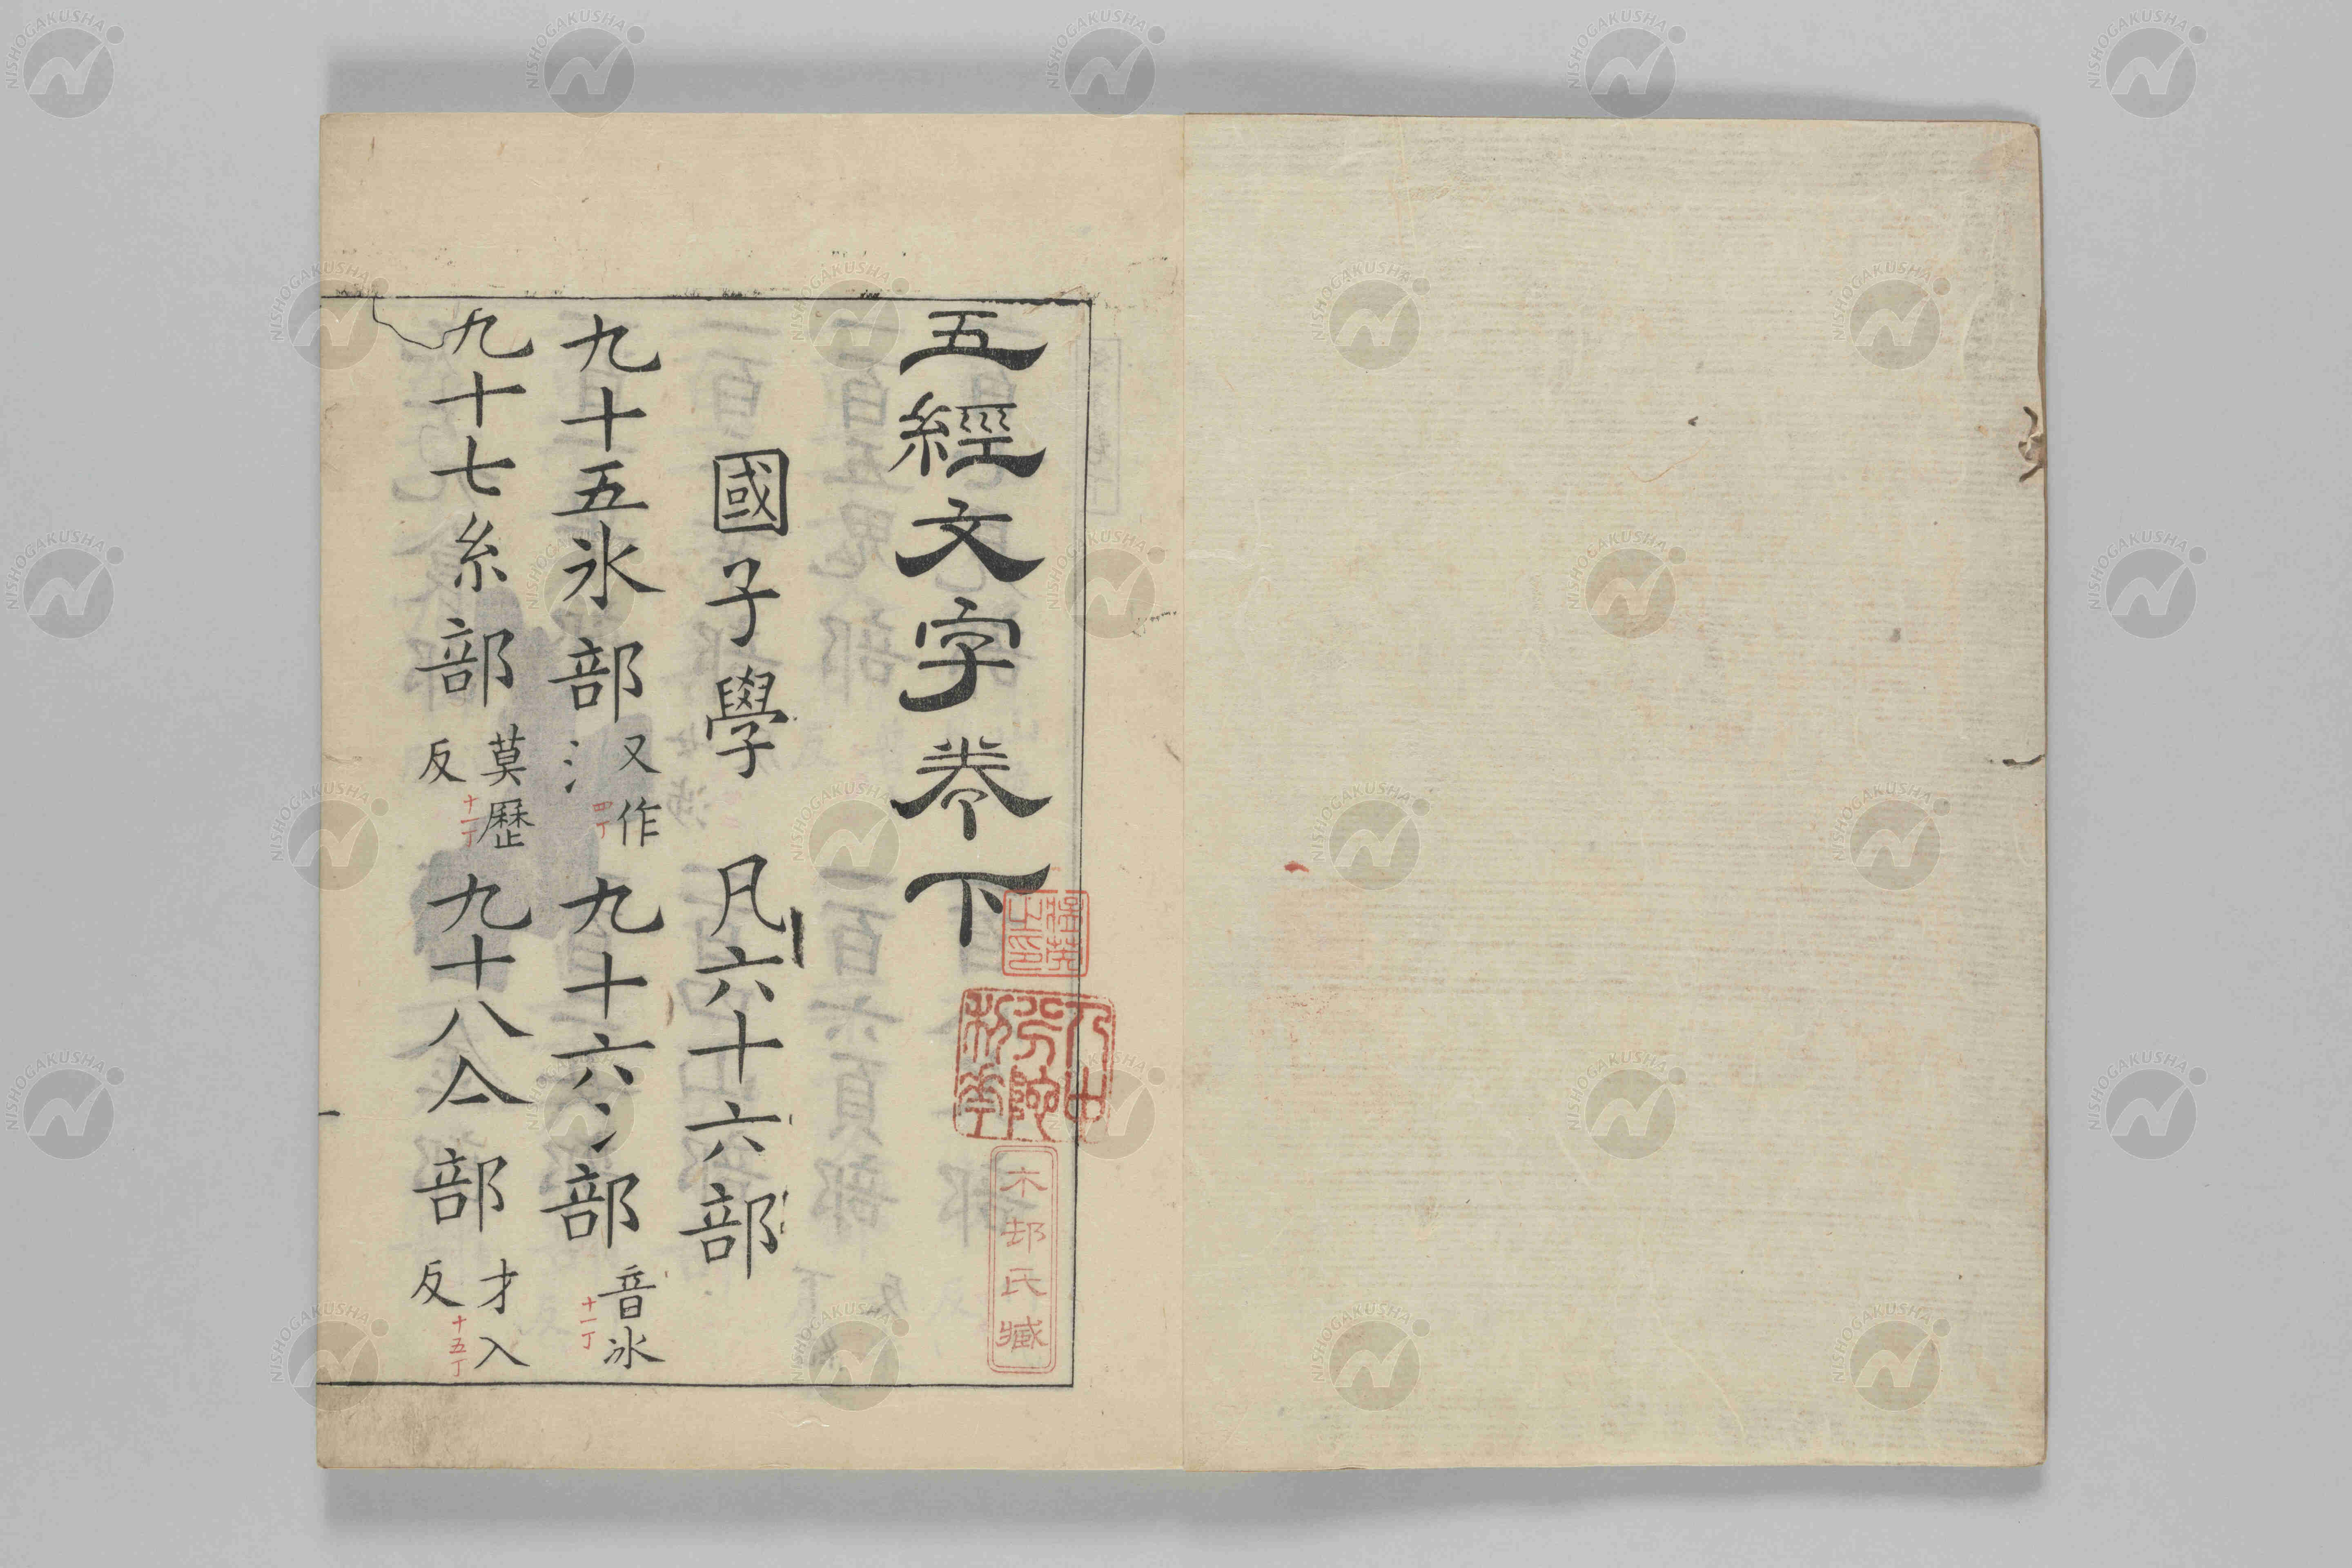 五經文字卷下
國子學 凡六十六部
九十五氷部 又作氵 四丁 九十六冫部 音冰 十一丁
九十七糸部 莫歷反 十一丁 九十八亼部 才入反 十五丁
木邨氏藏
NISHOGAKUSHA